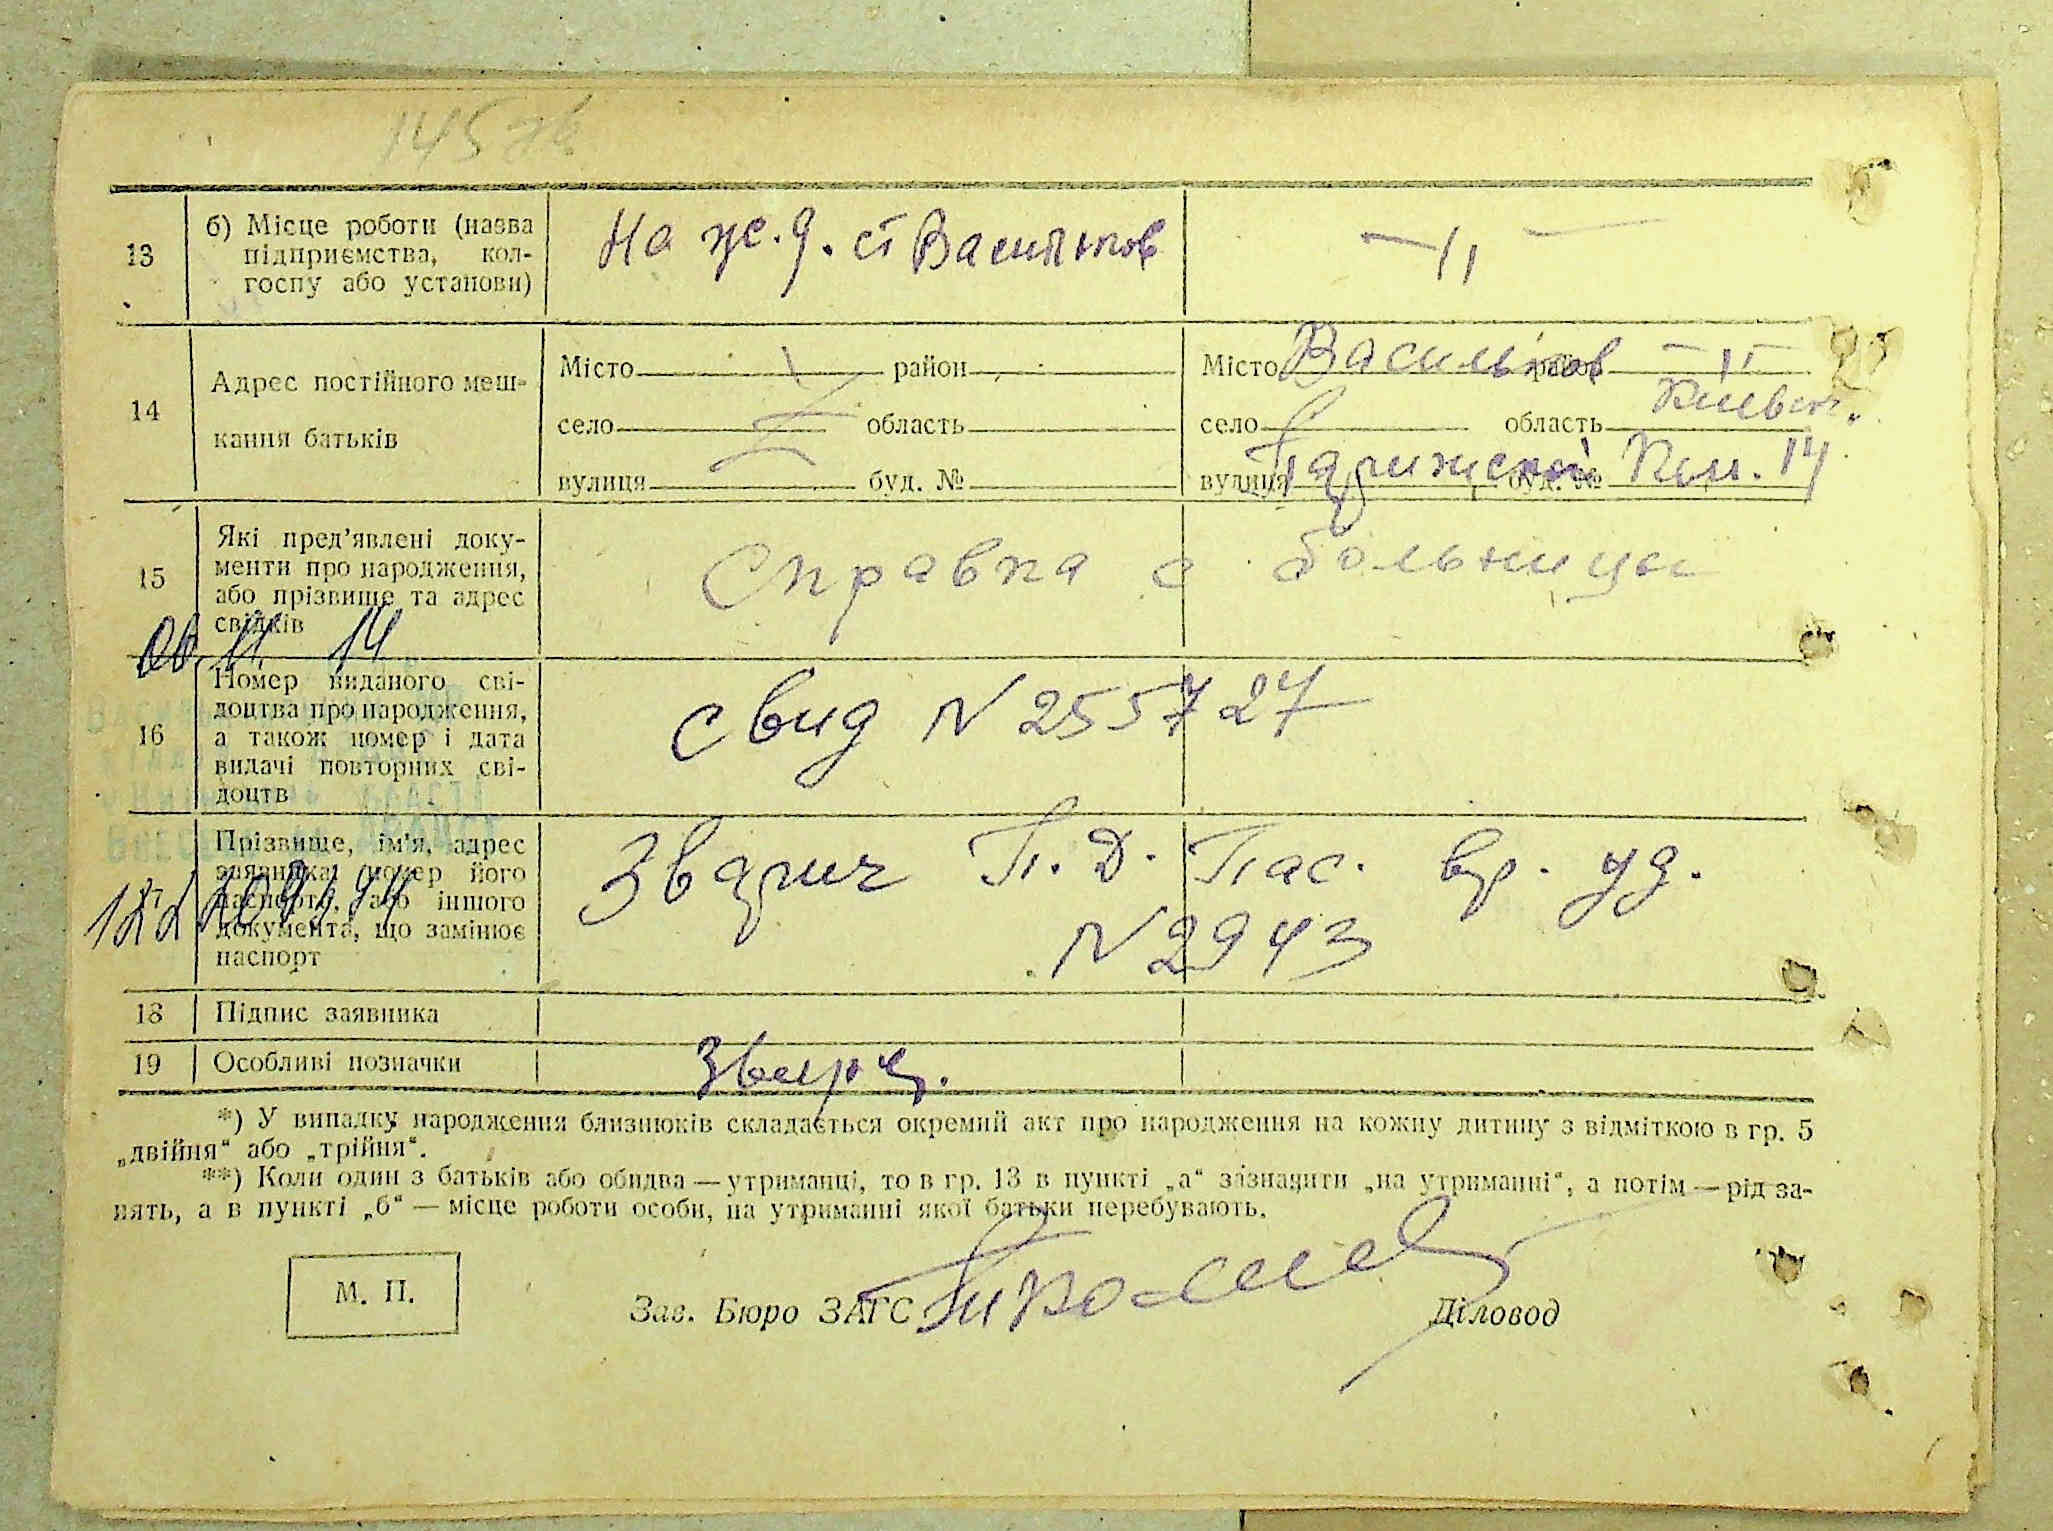 145 зв
13
б) Місце роботи (назва
підприємства, кол-
госпу або установи)
На ж.д. ст Васильков
—"—
14
Адрес постійного меш-
кання батьків
Місто район
село область
вулиця буд. №
Місто Васильков район —"—
село область Киевск.
вулиця буд. № 14
15
Які пред'явлені доку-
менти про народження,
або прізвище та адрес
свідків
Справка с больницы
16
Номер виданого сві-
доцтва про народження,
а також номер і дата
видачі повторних сві-
доцтв
свид N 255727
17
Прізвище, ім'я, адрес
заявника, номер його
паспорта, або іншого
документа, що замінює
паспорт
Звярич П. Д. Пас. вр. уд.
N 2943
18
Підпис заявника
19
Особливі позначки
*) У випадку народження близнюків складається окремий акт про народження на кожну дитину з відміткою в гр. 5
„двійня“ або „трійня“.
**) Коли один з батьків або обидва — утриманці, то в гр. 13 в пункті „а“ зазначити „на утриманні“, а потім — рід за-
нять, а в пункті „б“ — місце роботи особи, на утриманні якої батьки перебувають.
М. П.
Зав. Бюро ЗАГС
Діловод